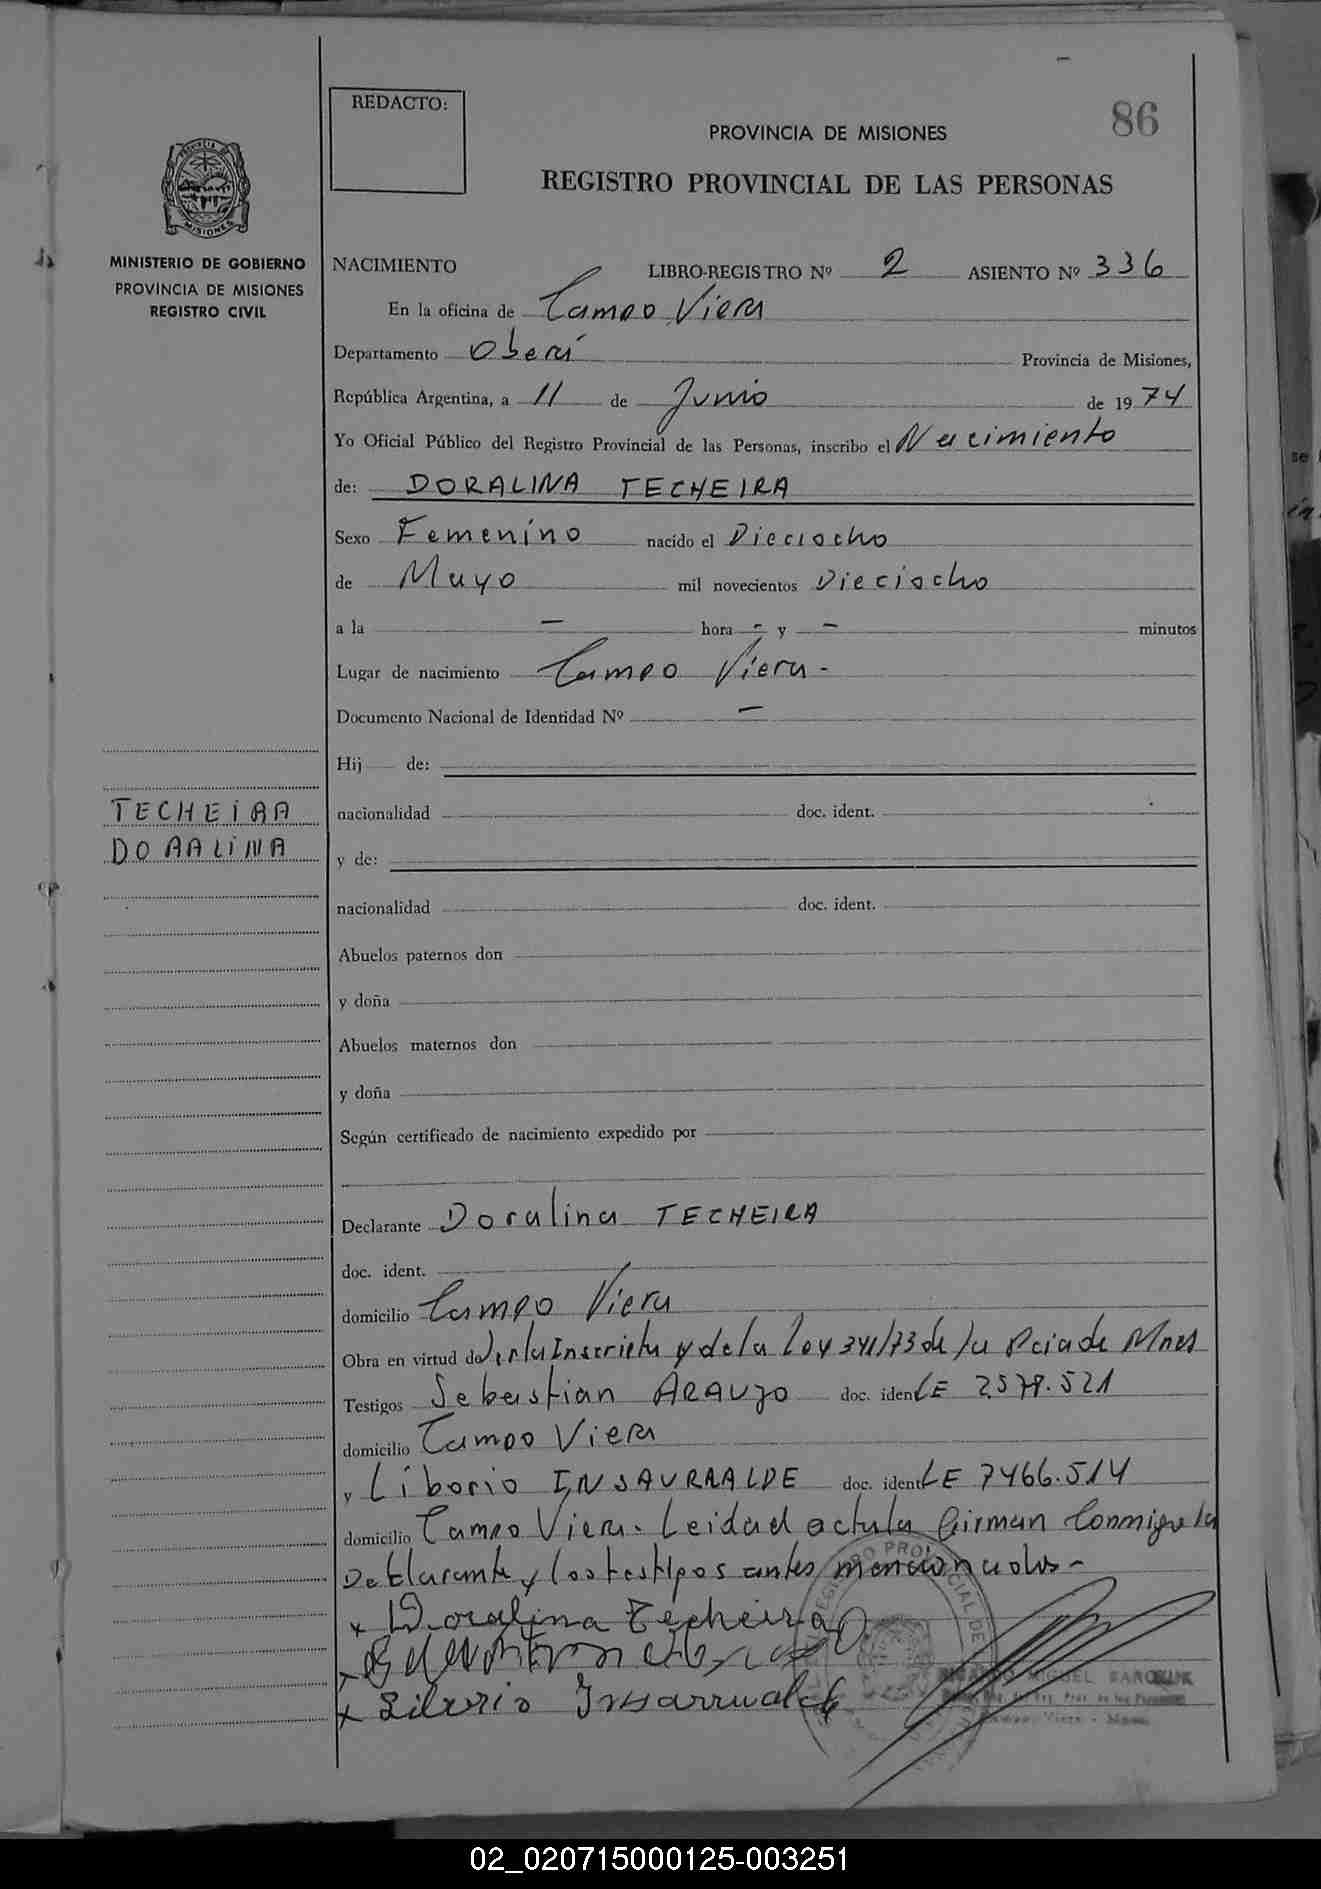 REDACTO:
86
PROVINCIA DE MISIONES
REGISTRO PROVINCIAL DE LAS PERSONAS
PROVINCIA DE
MISIONES
MINISTERIO DE GOBIERNO
PROVINCIA DE MISIONES
REGISTRO CIVIL
NACIMIENTO LIBRO-REGISTRO Nº 2 ASIENTO Nº 336
En la oficina de Campo Viera
Departamento Oberá Provincia de Misiones,
República Argentina, a 11 de Junio de 1974
Yo Oficial Público del Registro Provincial de las Personas, inscribo el Nacimiento
de: DORALINA TECHEIRA
Sexo Femenino nacido el Dieciocho
de Mayo mil novecientos Dieciocho
a la - hora - y - minutos
Lugar de nacimiento Campo Viera -
Documento Nacional de Identidad Nº -
Hij de:
TECHEIRA
DORALINA
nacionalidad doc. ident.
y de:
nacionalidad doc. ident.
Abuelos paternos don
y doña
Abuelos maternos don
y doña
Según certificado de nacimiento expedido por
Declarante Doralina TECHEIRA
doc. ident.
domicilio Campo Viera
Obra en virtud de Ser la Inscripta y de la Ley 341/73 de la Pcia de Mnes
Testigos Sebastian ARAUJO doc. ident LE 2.579.521
domicilio Campo Viera
y Liborio INSAURRALDE doc. ident LE 7466.514
domicilio Campo Viera. Leida el acta la Firman Conmigo la
Declarante y los testigos antes mencionados -
x Doralina Techeira
x
x Liborio Insaurralde
MIGUEL
02_020715000125-003251